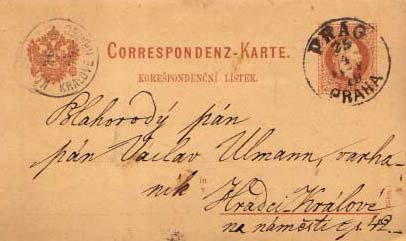 CORRESPONDENZ-KARTE.
KOREŠPONDENČNÍ LÍSTEK.
PRAG
25
4
PRAHA
KRÁLOVÉ
Blahorodý pán
pán Vaclav Ulmann, varha-
ník
in
v
Hradci Králové
na náměstí č. 42.